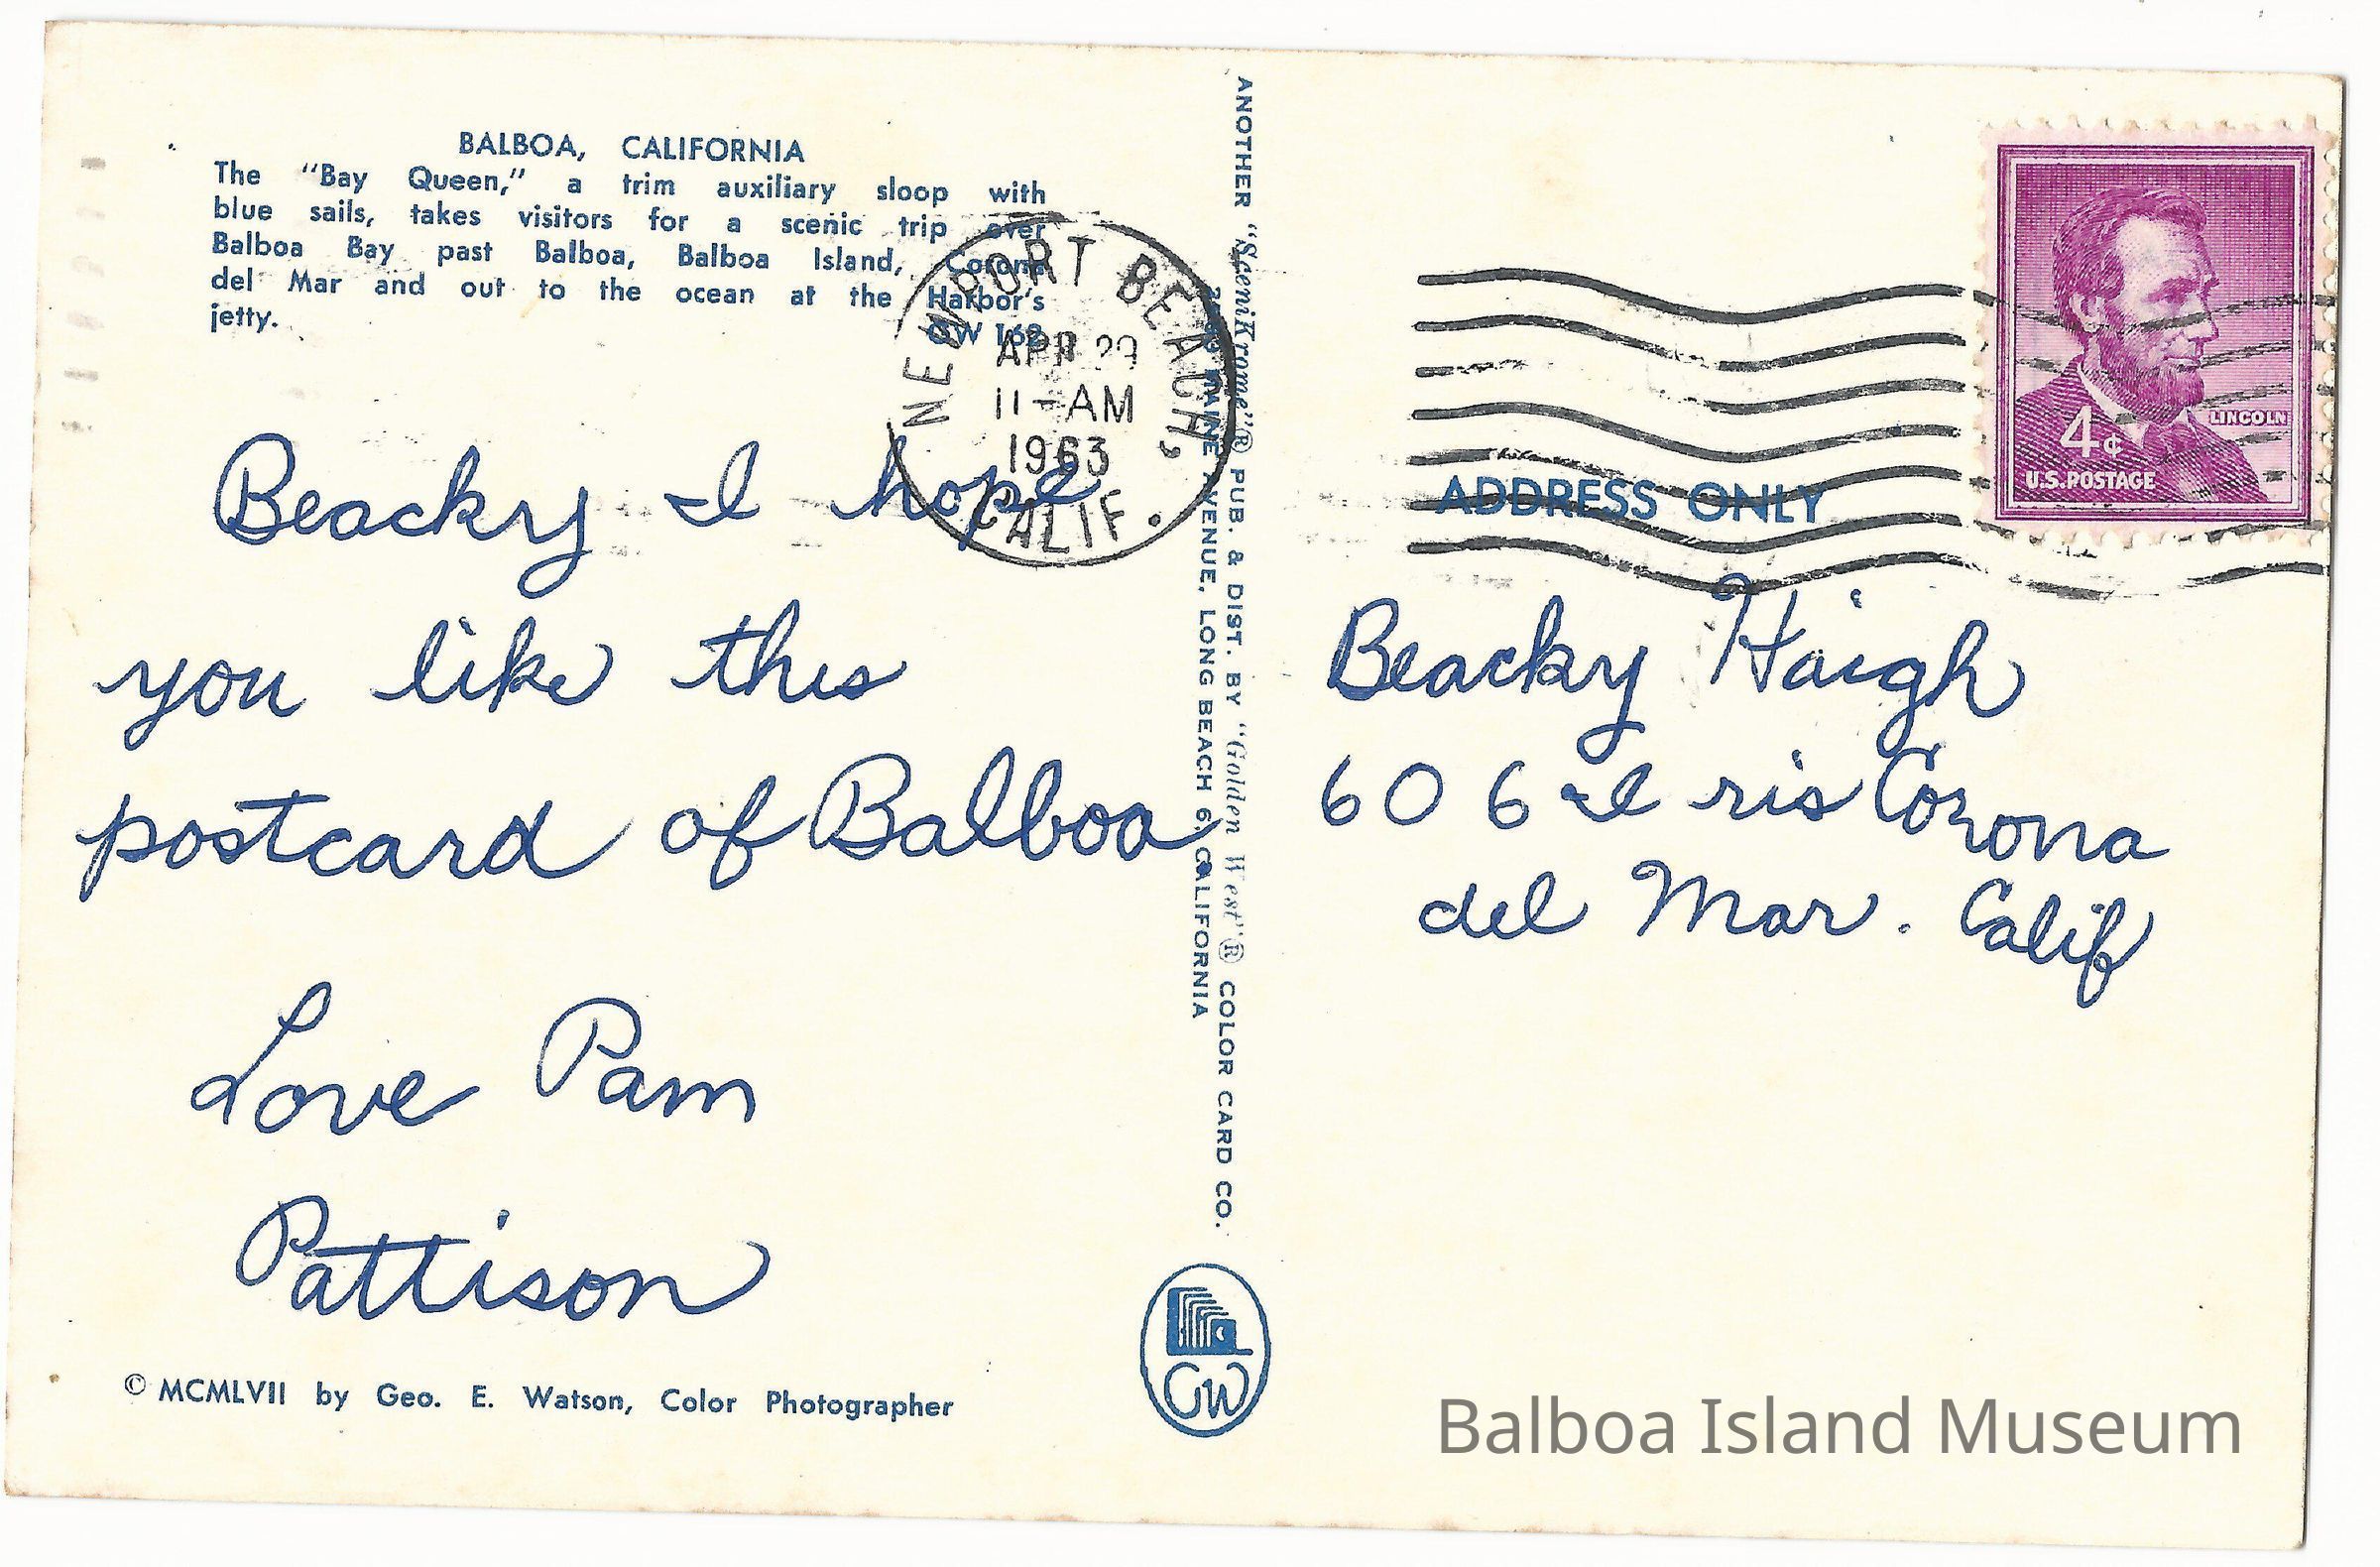 BALBOA, CALIFORNIA
The "Bay Queen," a trim auxiliary sloop with
blue sails, takes visitors for a scenic trip over
Balboa Bay past Balboa, Balboa Island, Corona
del Mar and out to the ocean at the Harbor's
jetty.
GW 162
NEWPORT BEACH,
APR 29
11-AM
1963
CALIF.
Beacky I hope
you like this
postcard of Balboa
Love Pam
Pattison
© MCMLVII by Geo. E. Watson, Color Photographer
ANOTHER "SceniKrome"® PUB. & DIST. BY "Golden West"® COLOR CARD CO.
MAINE AVENUE, LONG BEACH 6, CALIFORNIA
GW
LINCOLN
4¢
U.S. POSTAGE
ADDRESS ONLY
Beacky Haigh
606 Iris Corona
del Mar. Calif
Balboa Island Museum